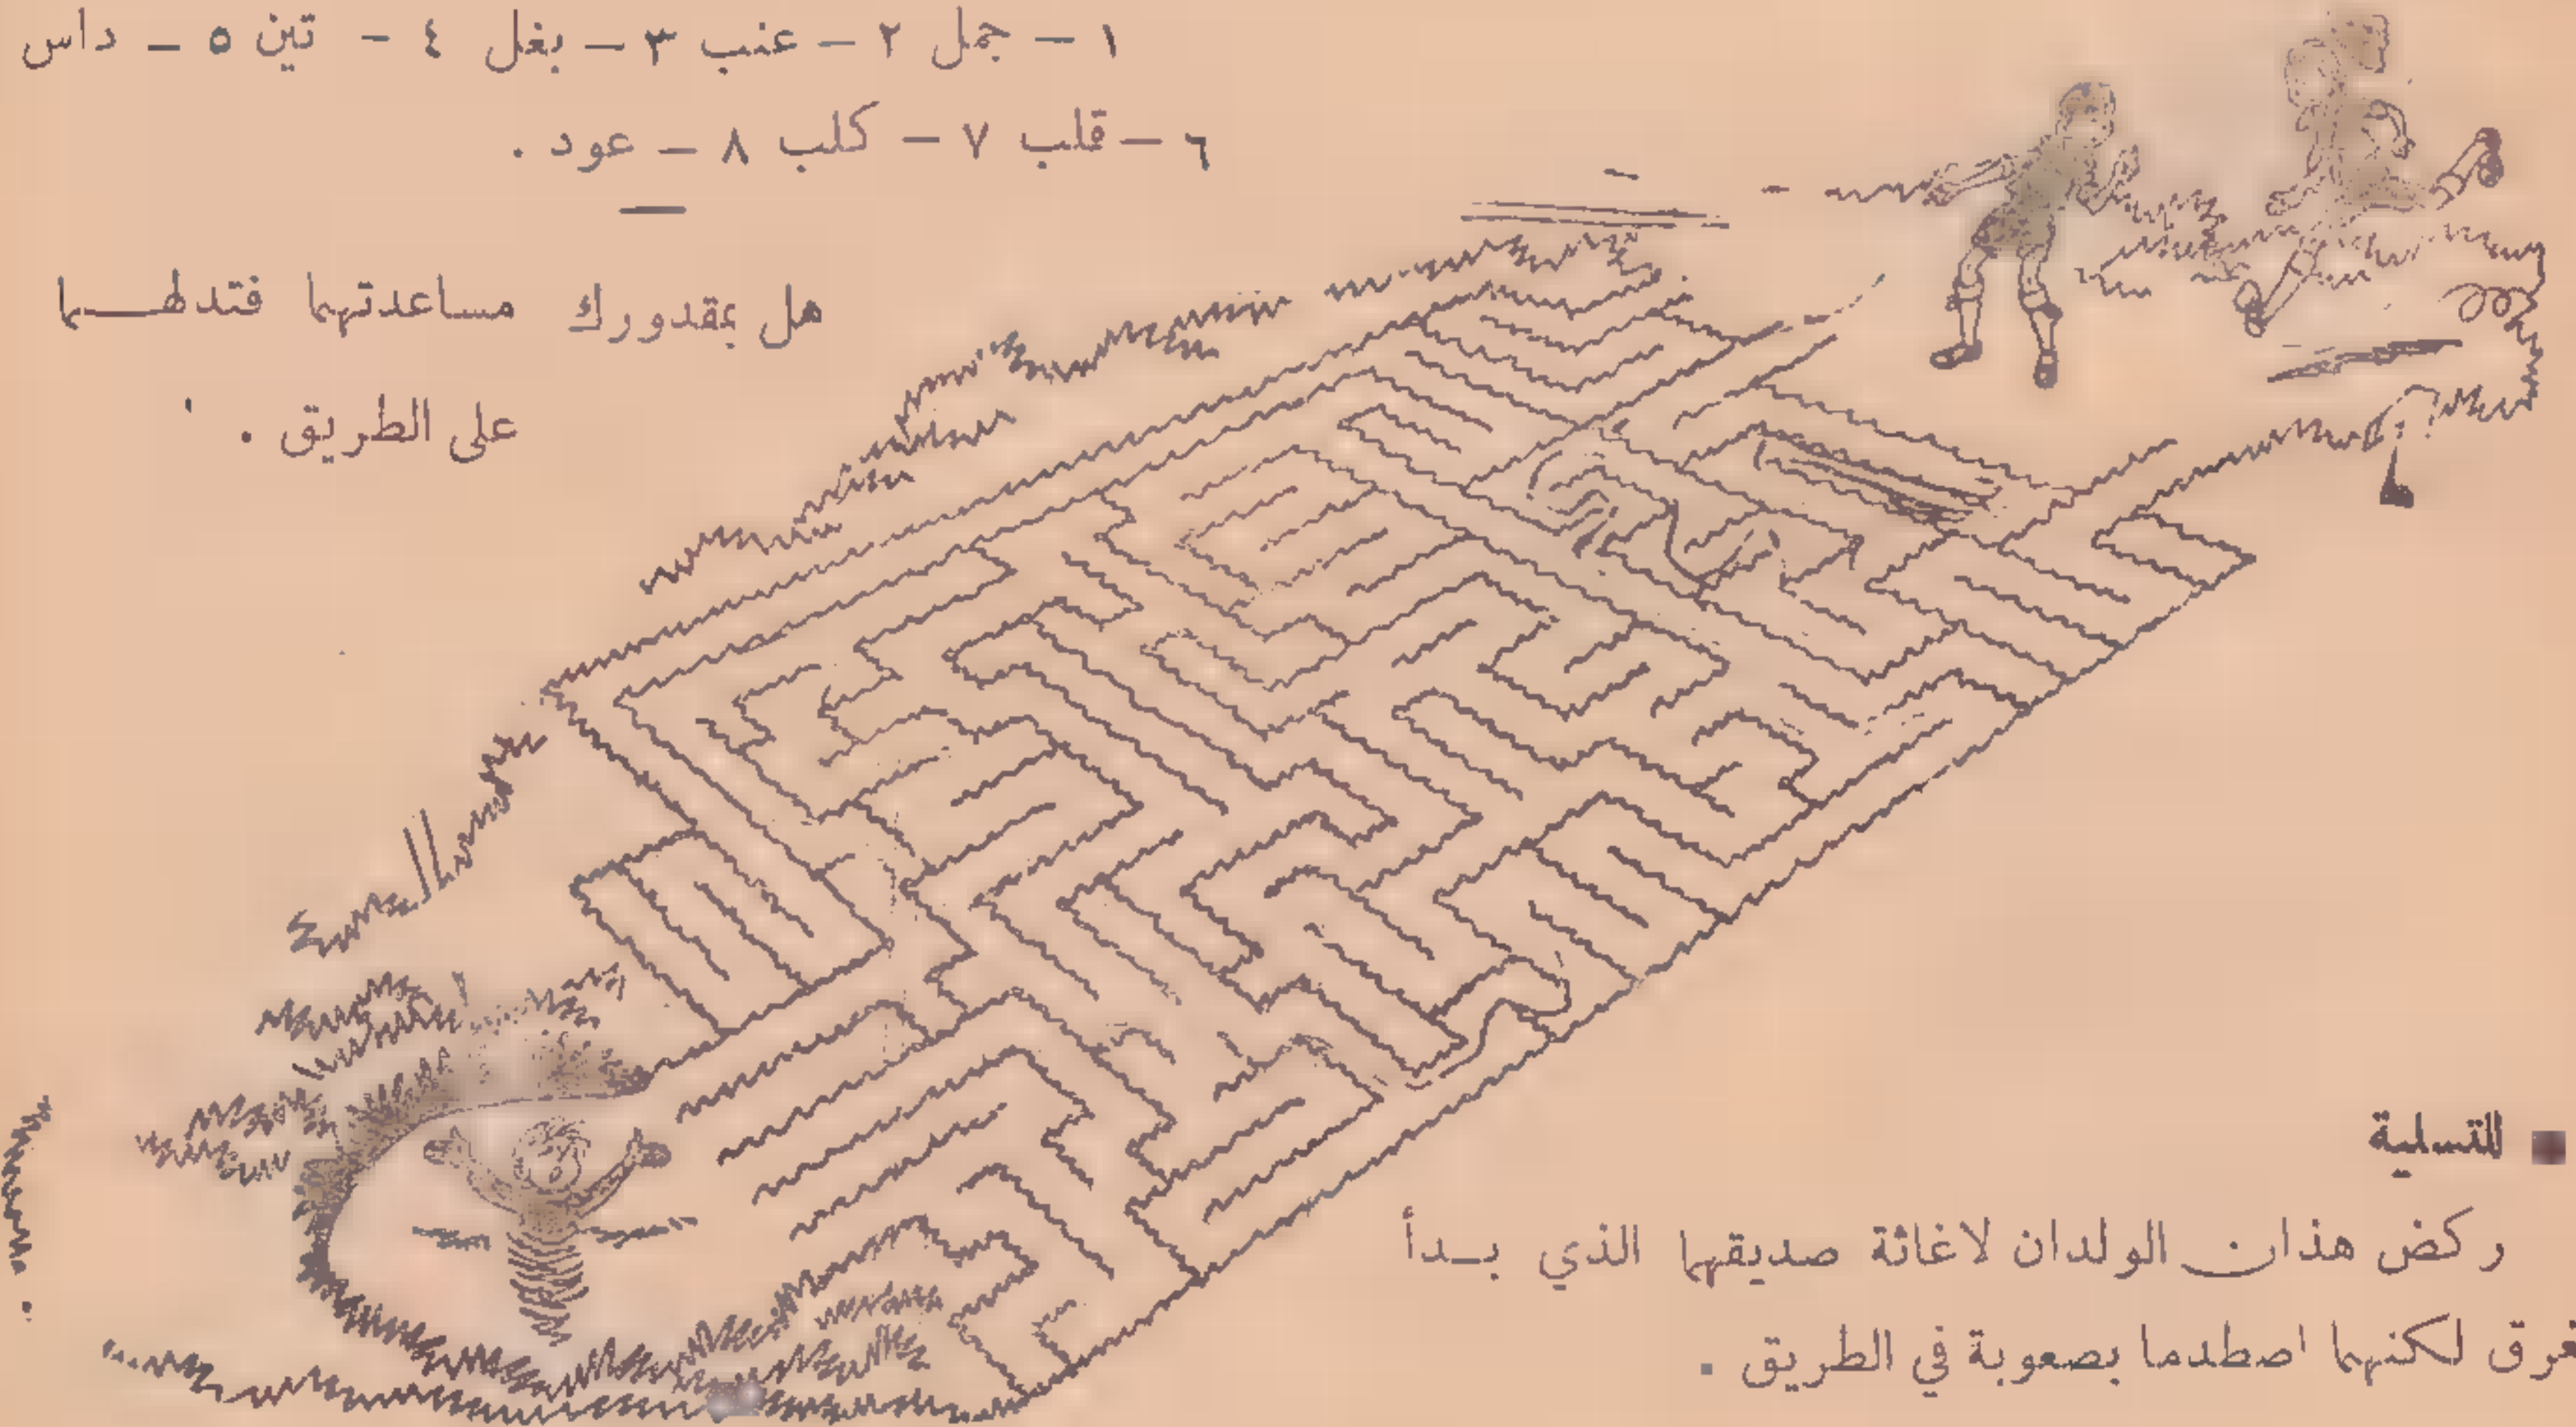 ١ - جمل ٢ - عنب ٣ - بغل ٤ - تين ٥ - داس
٦ - قلب ٧ - كلب ٨ - عود .
هل بمقدورك مساعدتهما فتدلهـما
على الطريق .
■ للتسلية
ركض هذان الولدان لاغاثة صديقهما الذي بـدأ
يغرق لكنهما اصطدما بصعوبة في الطريق .